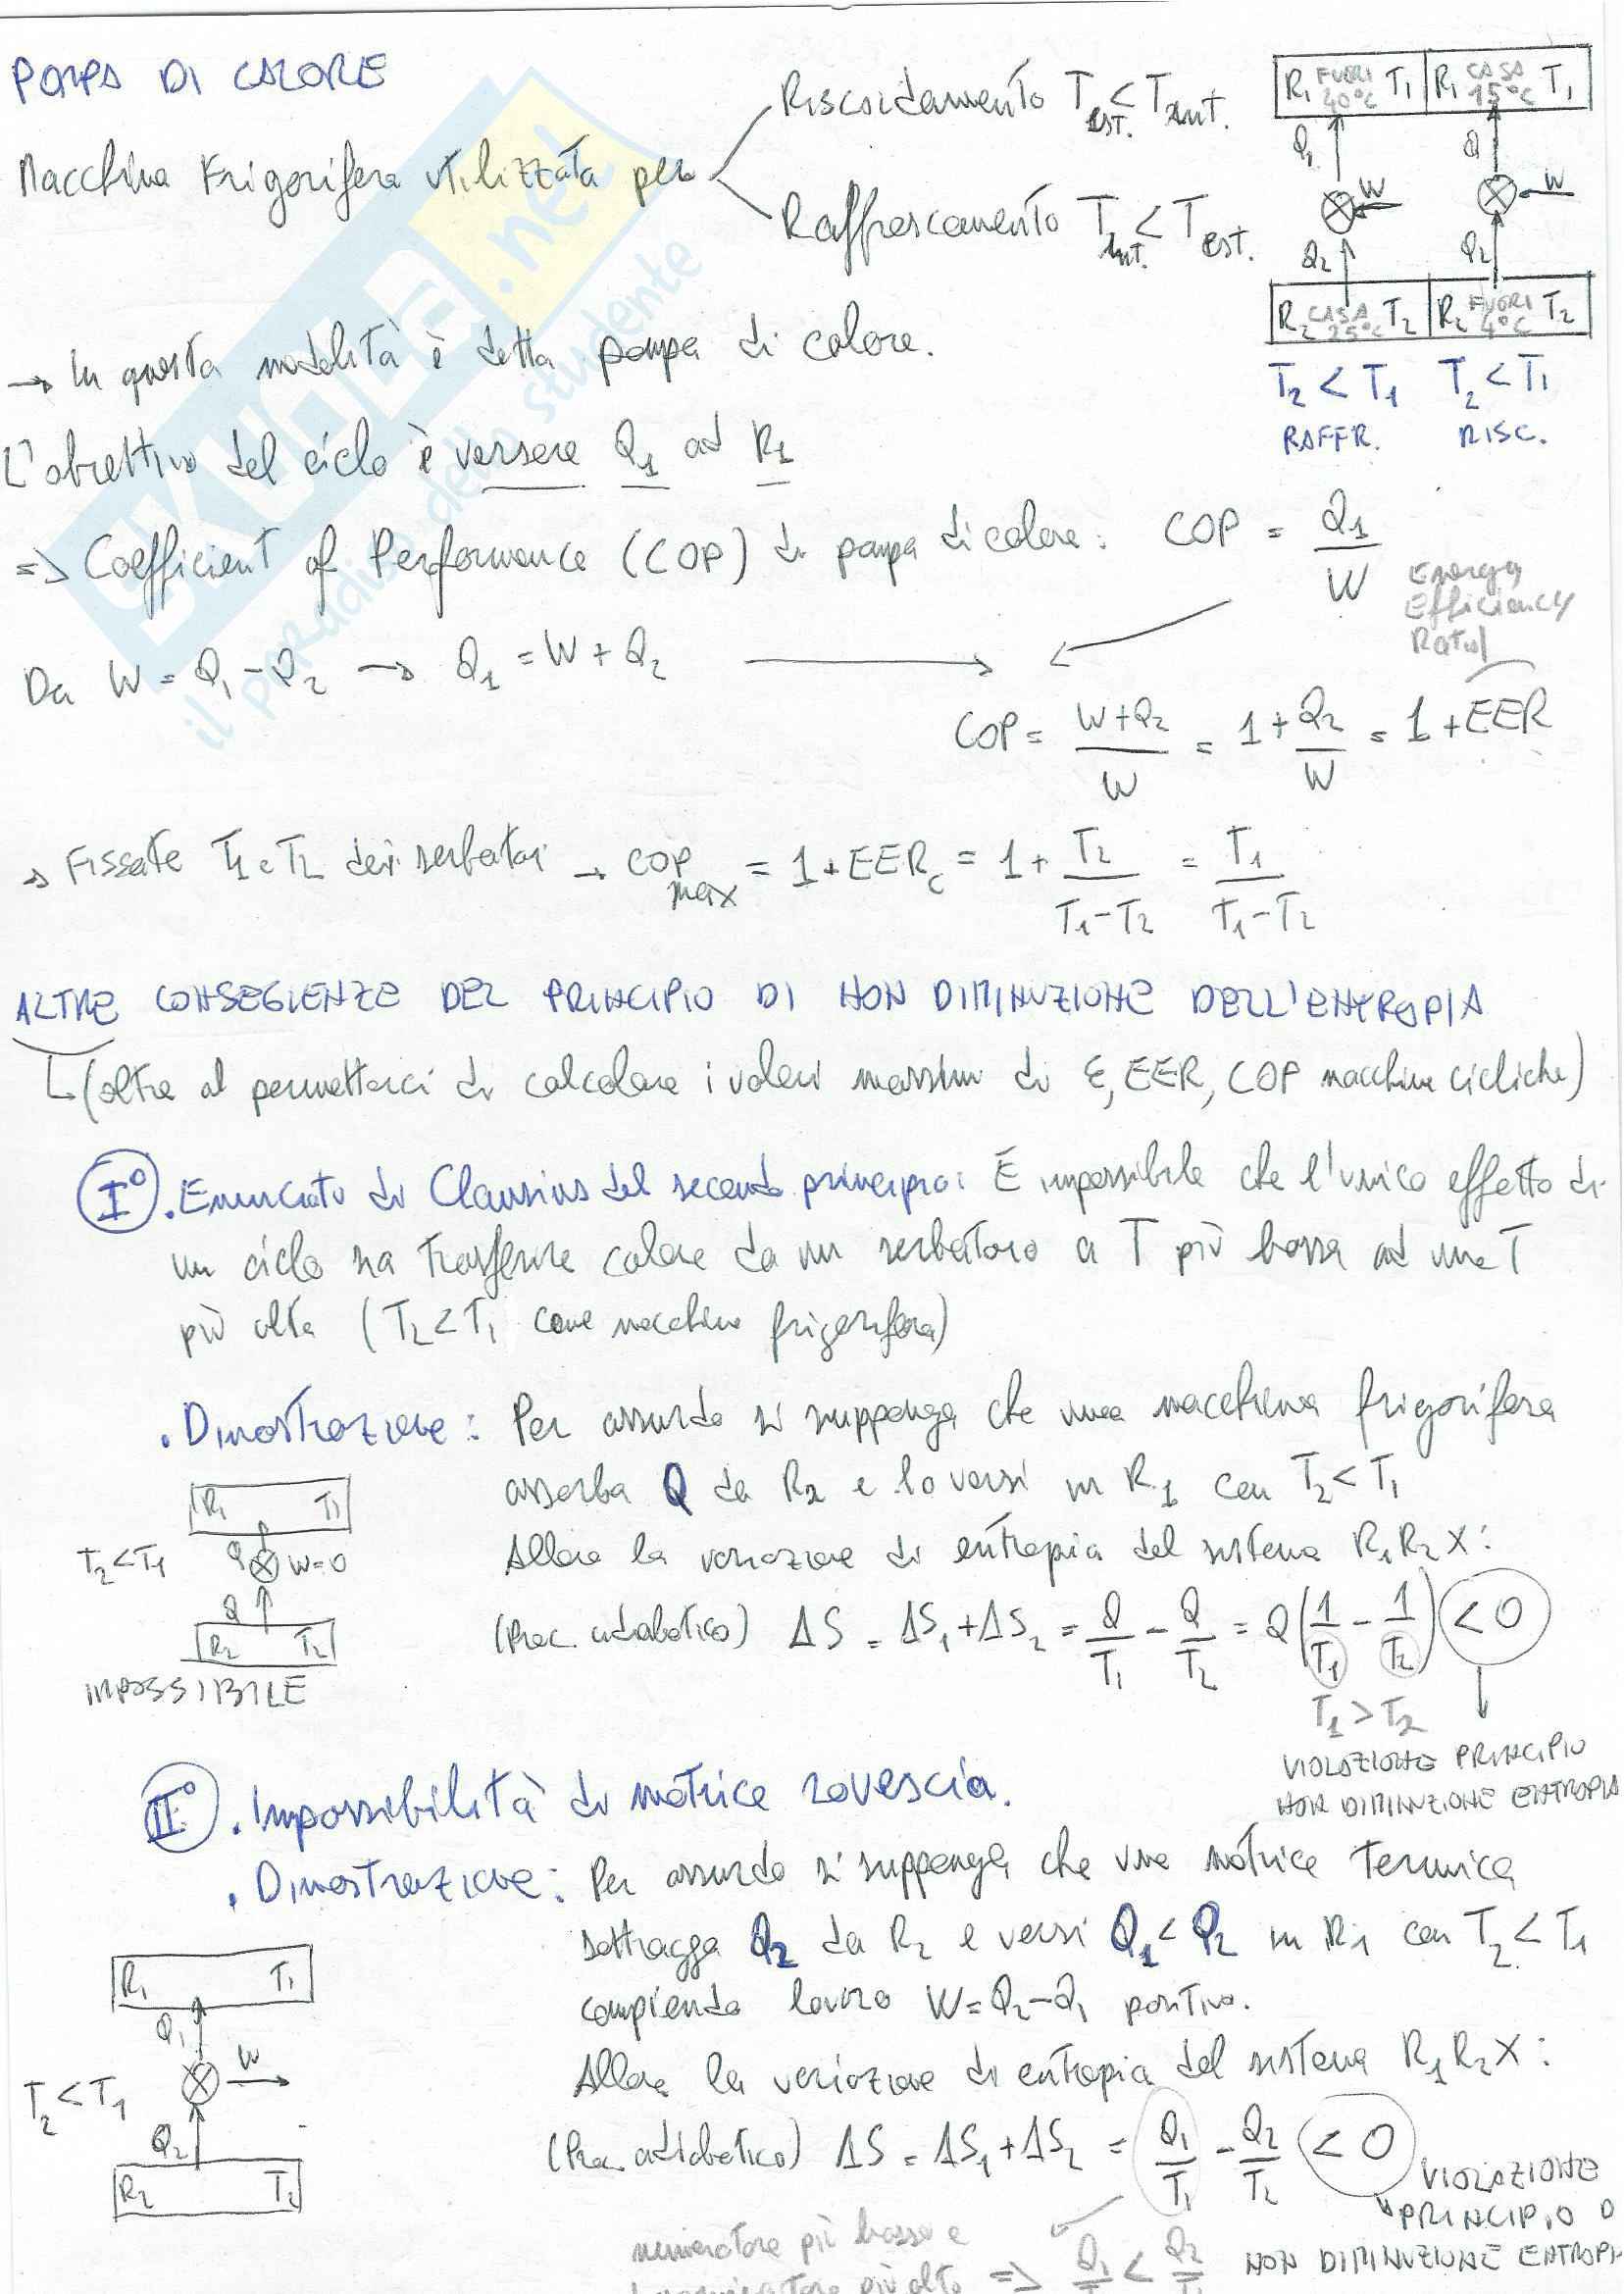 POMPA DI CALORE
Macchina Frigorifera utilizzata per
Riscaldamento T est. < T int.
Raffrescamento T int. < T est.
R1 FUORI 40°C T1 R1 CASA 15°C T1
Q1 Q1
W W
Q2 Q2
R2 CASA 25°C T2 R2 FUORI 4°C T2
T2 < T1 T2 < T1
RAFFR. RISC.
→ In questa modalità è detta pompa di calore.
L'obiettivo del ciclo è versare Q1 ad R1
=> Coefficient of Performance (COP) di pompa di calore: COP = Q1/W
Energy
Efficiency
Ratio
Da W = Q1 - Q2 → Q1 = W + Q2
COP = (W+Q2)/W = 1 + Q2/W = 1 + EER
→ Fissate T1 e T2 dei serbatoi → COP max = 1 + EERc = 1 + T2/(T1-T2) = T1/(T1-T2)
ALTRE CONSEGUENZE DEL PRINCIPIO DI NON DIMINUZIONE DELL'ENTROPIA
(oltre al permetterci di calcolare i valori massimi di ε, EER, COP macchine cicliche)
I° . Enunciato di Clausius del secondo principio: È impossibile che l'unico effetto di
un ciclo sia trasferire calore da un serbatoio a T più bassa ad una T
più alta (T2 < T1 come macchina frigorifera)
. Dimostrazione: Per assurdo si supponga che una macchina frigorifera
assorba Q da R2 e lo versi in R1 con T2 < T1
Allora la variazione di entropia del sistema R1R2X:
(Proc. adiabatico) ΔS = ΔS1 + ΔS2 = Q/T1 - Q/T2 = Q(1/T1 - 1/T2) < 0
T1 > T2
VIOLAZIONE PRINCIPIO
NON DIMINUZIONE ENTROPIA
R1 T1
T2 < T1 Q W=0
Q
R2 T2
IMPOSSIBILE
II° . Impossibilità di motrice rovescia.
. Dimostrazione: Per assurdo si supponga che una motrice termica
sottragga Q2 da R2 e versi Q1 < Q2 in R1 con T2 < T1
compiendo lavoro W = Q2 - Q1 positivo.
Allora la variazione di entropia del sistema R1R2X:
(Proc. adiabatico) ΔS = ΔS1 + ΔS2 = Q1/T1 - Q2/T2 < 0
VIOLAZIONE
PRINCIPIO D
NON DIMINUZIONE ENTROPI
R1 T1
Q1
T2 < T1 W
Q2
R2 T2
numeratore più basso e
più alto => Q1/T1 < Q2/T2
SKUOLA.net
il paradiso dello studente